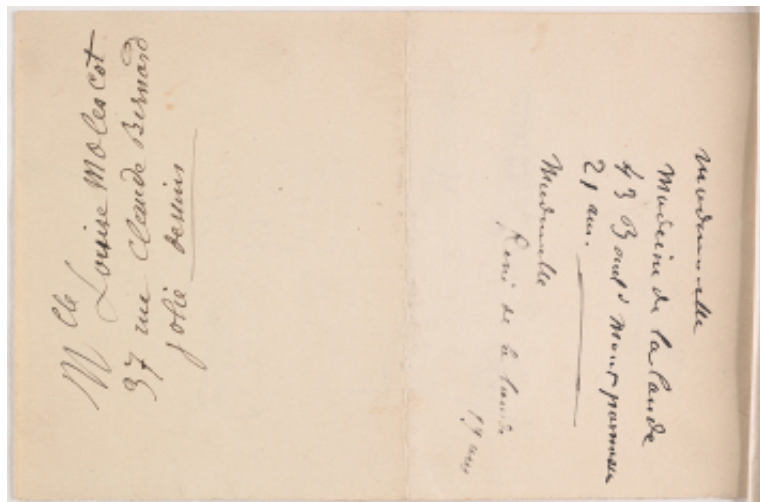 Mlle Louise Molescot
37 rue Claude Bernard
jolie dessins
Mademoiselle
Madeleine de la Lande
43 Boul d Montparnasse
21 ans.
Mademoiselle
René de la Lande
19 ans